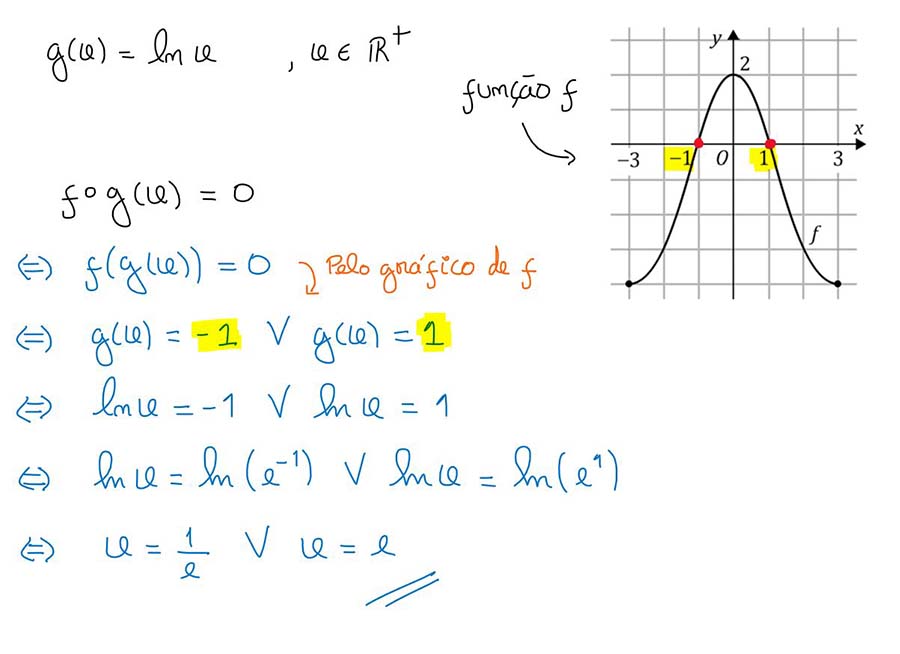 g(x) = ln x , x ∈ ℝ⁺
função f
y
2
x
−3 −1 O 1 3
f
f∘g(x) = 0
⇔ f(g(x)) = 0 Pelo gráfico de f
⇔ g(x) = -1 ∨ g(x) = 1
⇔ ln x = -1 ∨ ln x = 1
⇔ ln x = ln(e⁻¹) ∨ ln x = ln(e¹)
⇔ x = 1/e ∨ x = e